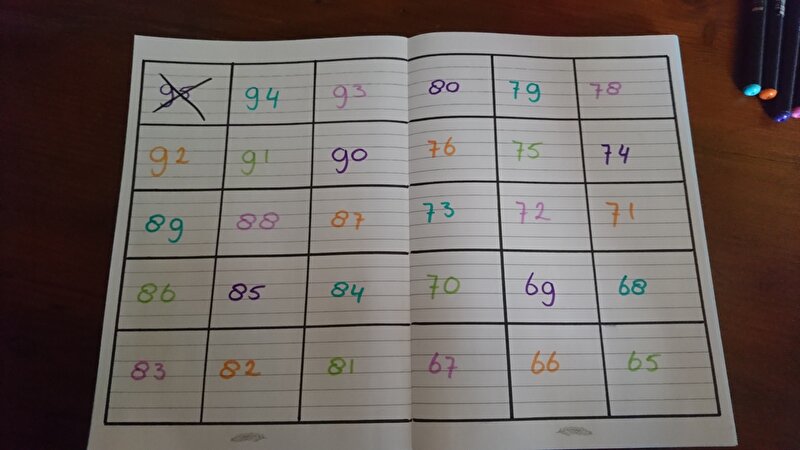 95 94 93 80 79 78
92 91 90 76 75 74
89 88 87 73 72 71
86 85 84 70 69 68
83 82 81 67 66 65